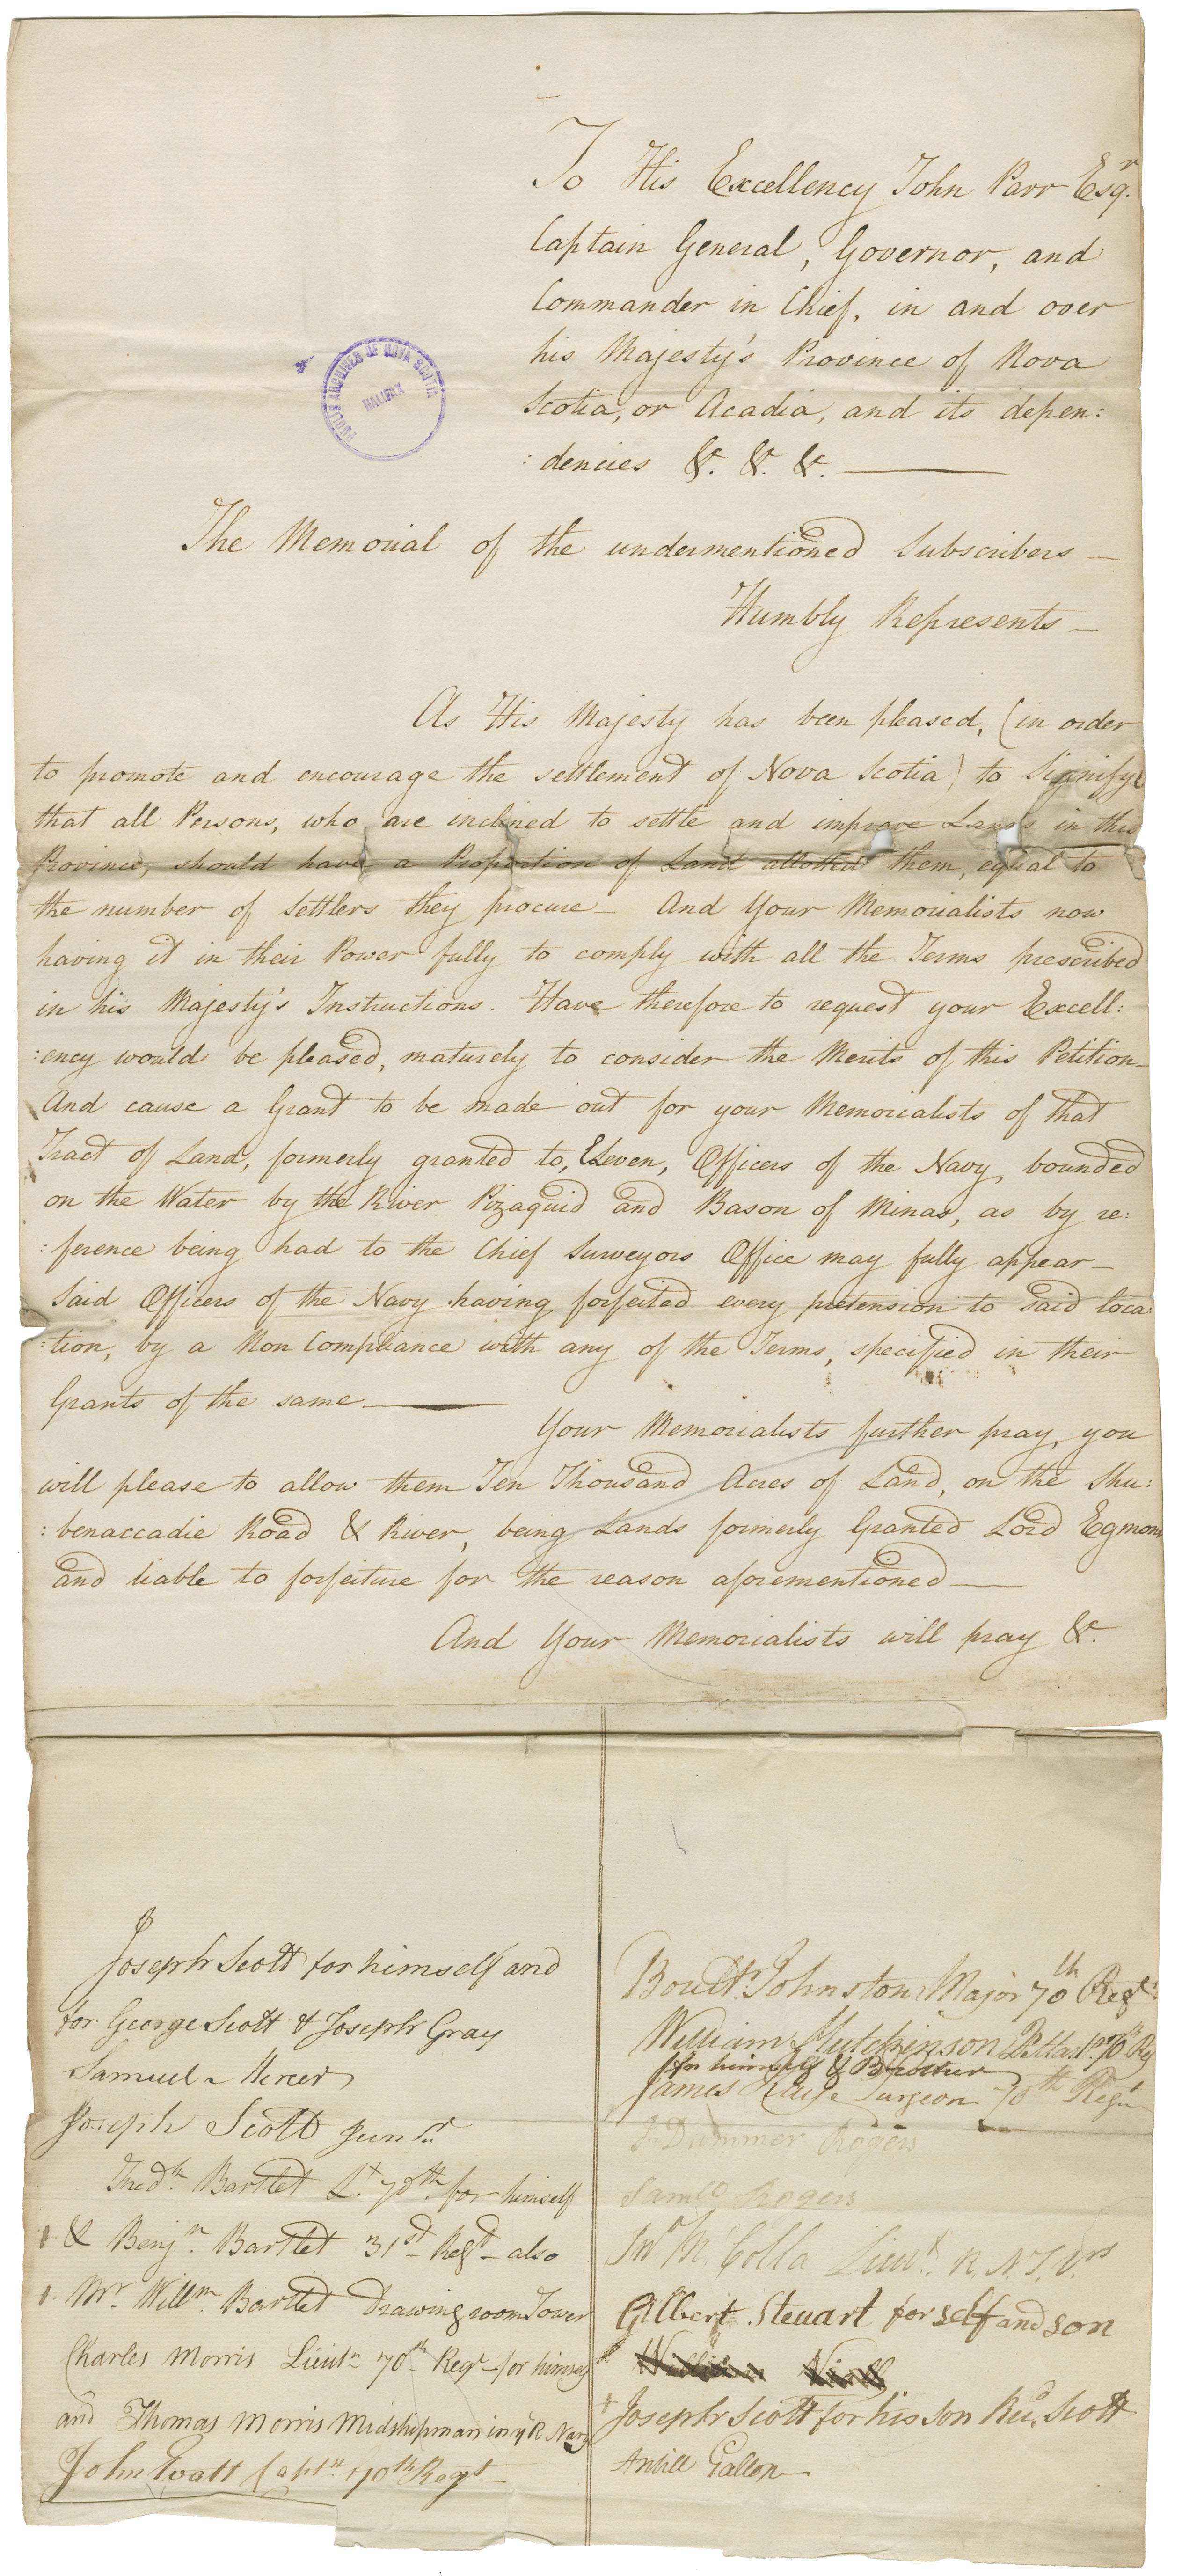 To His Excellency John Parr Esqr.
Captain General, Governor, and
Commander in Chief, in and over
his Majesty's Province of Nova
Scotia, or Acadia, and its depen:
:dencies &c. &c. &c.
PUBLIC ARCHIVES OF NOVA SCOTIA
HALIFAX
The Memorial of the undermentioned Subscribers —
Humbly Represents —
As His Majesty has been pleased, (in order
to promote and encourage the settlement of Nova Scotia) to Signify
that all Persons, who are inclined to settle and improve Lands in this
Province, should have a Proportion of Land allotted them, equal to
the number of Settlers they procure — And Your Memorialists now
having it in their Power fully to comply with all the Terms prescribed
in his Majesty's Instructions. Have therefore to request your Excell:
:ency would be pleased, maturely to consider the Merits of this Petition —
And cause a Grant to be made out for your Memorialists of that
Tract of Land, formerly granted to, Eleven, Officers of the Navy, bounded
on the Water by the River Pizaquid and Bason of Minas, as by re:
:ference being had to the Chief Surveyors Office may fully appear —
Said Officers of the Navy having forfeited every pretension to said loca:
:tion, by a Non Compliance with any of the Terms, specified in their
Grants of the same —
Your Memorialists further pray, you
will please to allow them Ten Thousand Acres of Land, on the Shu:
:benaccadie Road & River, being Lands formerly Granted Lord Egmont
and liable to forfeiture for the reason aforementioned —
And Your Memorialists will pray &c.
Joseph Scott for himself and
for George Scott & Joseph Gray
Samuel Mercer
Joseph Scott Junr
Bartlet Lt. 70th. for himself
& Benjn. Bartlet 31st Regt — also
Mr. Willm. Bartlet Drawing room Tower
Charles Morris Lieutn 70th Regt — for himself
and Thomas Morris Midshipman in ye R. Navy
John Captn 70th Regt
Johnston Major 70th Regt.
William Hutchinson 70th Reg
for himself & Brother
James Surgeon 70th Regt
Dummer Rogers
Saml Rogers
Jno McColla Lieut. R. N. S. Vrs
Gilbert Steuart for self and son
Joseph Scott for his son Scott
Antill Gallop